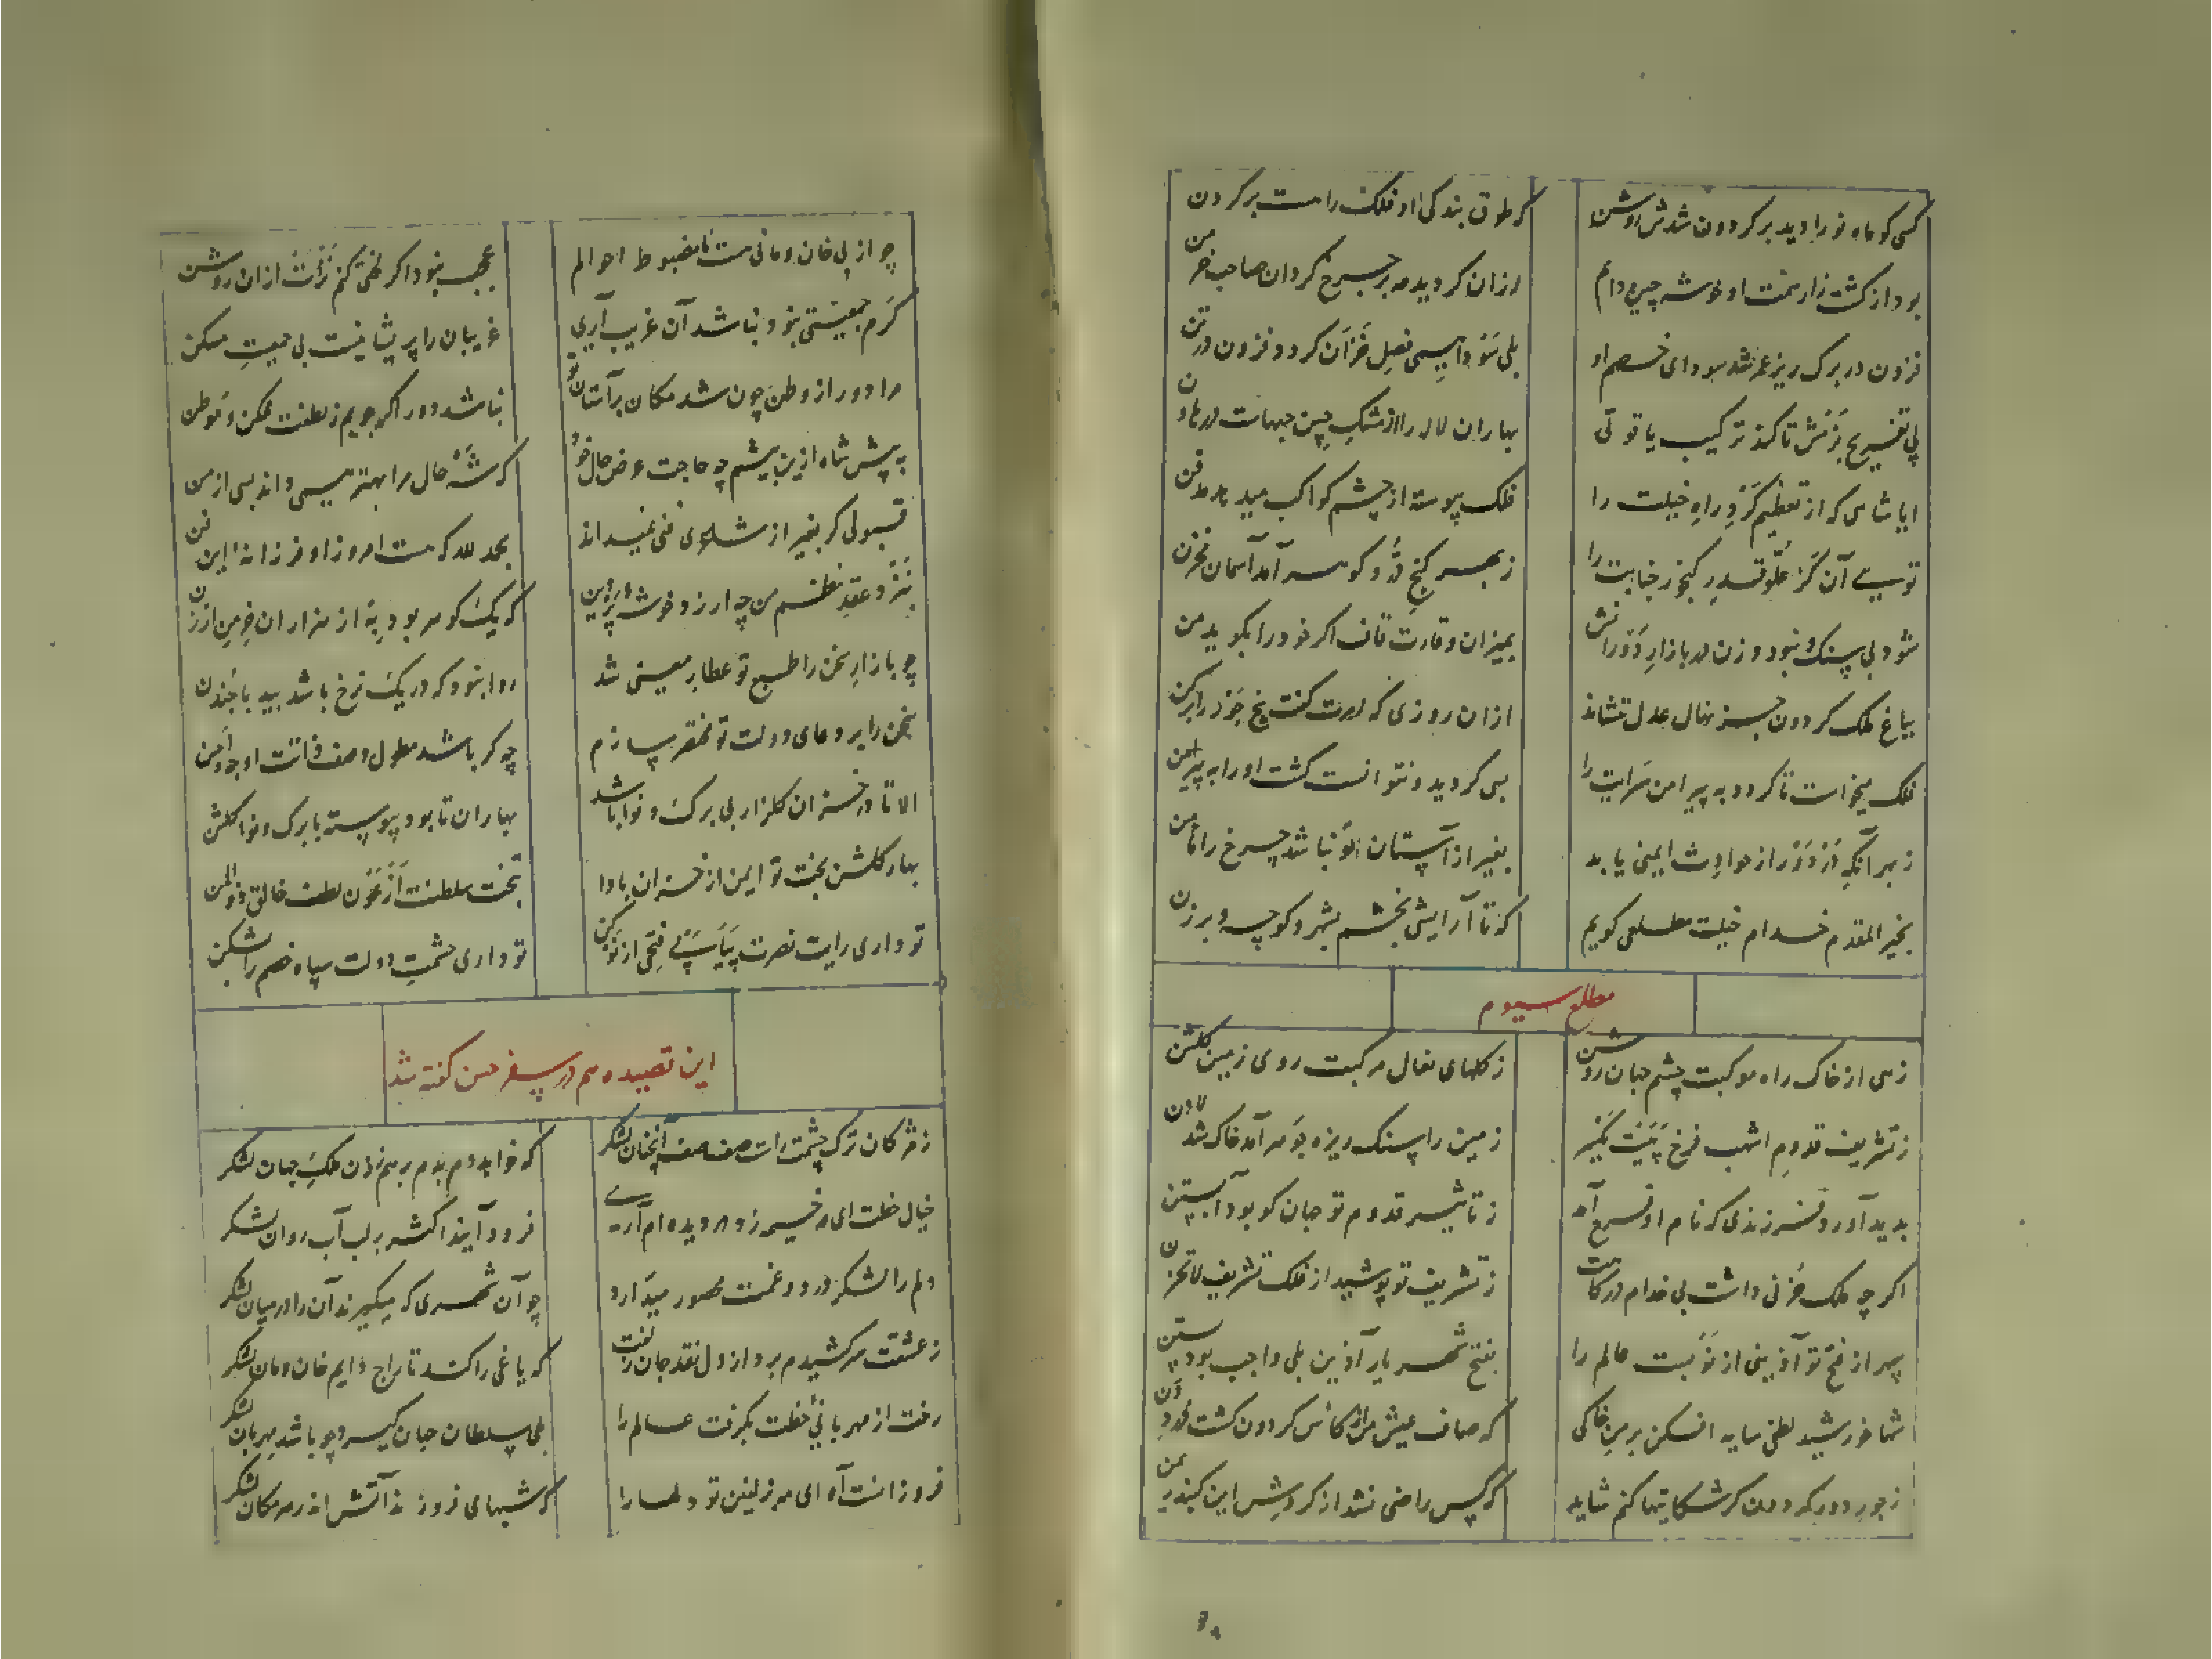 کسی کو ماه نو را دید بر گردون شدش روشن
که طوق بندگی او فلک راست بر گردن
بود از کشت زار همتت او خوشه چین دایم
ازان گردید مه بر چرخ گردان صاحب خرمن
فزون در برگ ریز عمر شد سودای خصم او
بلی سودا بسی فصل خزان گردد فزون در تن
پی تفریح بزمش تا کند ترکیب یاقوتی
بهاران لاله را از مشک چین جهاست در هاون
ایا شاهی که از تعظیم گرد راه خیلت را
فلک پیوسته از چشم کواکب میدهد مسکن
تویی آن کز علو قدر گنجور جنابت را
ز بهر گنج در و گوهر آمد آسمان مخزن
شود بی سنگ و نبود وزن در بازار دورانش
بمیزان وقارت قاف اگر خود را بگوید من
بباغ ملک گردون جز نهال عدل ننشاند
ازان روزی که عدلت گفت بیخ جور را برکن
فلک میخواست تا گردد به پیرامن سرایت را
بسی گردید و نتوانست گشت او را به پیرامن
ز بهر آنکه از دور از حوادث ایمنی یابد
بغیر از آستان تو نباشد چرخ را مامن
بخیر المقدم خدام خیلت مطلعی گویم
که تا آرایش بخشم بشهر و کوچه و برزن
مطلع سیوم
زهی از خاک راه موکبت چشم جهان روشن
ز گلهای نعال مرکبت روی زمین گلشن
ز تشریف قدوم اشهب فرخ پیت یکسر
زمین را سنگ ریزه جوهر آمد خاک شد لادن
پدید آورد فرزندی که نام او فرح آمد
ز تاثیر قدوم تو جهان کو بود آبستن
اگر چه ملک حزنی داشت بی خدام درگاهت
ز تشریف تو پوشید از فلک تشریف لاتحزن
سپهر از فتح تو آذین از نو بست عالم را
بفتح شهریار آذین بلی واجب بود بستن
شها خورشید لطفی سایه افکن بر من خاکی
که صاف عیش من از کاس گردون گشت درد دن
ز جور دور گردون گر شکایتها کنم شاید
که کس راضی نشد از گردش این گنبد
چو از بی خان و مانی هست نامضبوط احوالم
عجب نبود اگر نظمی کنم نزدت ازان روشن
گرم جمعیتی نبود نباشد آن غریب آری
غریبان را پریشانیست بی جمعیت مسکن
مرا دور از وطن چون شد مکان بر آستان تو
نباشد دور اگر جویم ز لطفت مسکن و موطن
به پیش شاه ازین بیشم چه حاجت عرض حال خود
که شه حال مرا بهتر همی داند بسی از من
قبولی گر بغیر از شاعری فنی نمیداند
بحمد لله که هست امروز او فرزانه این فن
بنزد عقد نظم من چه ارزد خوشه پروین
که یک گوهر بود به از هزاران خرمن ارزن
چو بازار سخن را طبع تو عطار معنی شد
روا نبود که در یک نرخ باشد بید با چندن
سخن را بر دعای دولت تو مختصر سازم
چه گر باشد مطول وصف ذاتت اوجز و احسن
الا تا در خزان گلزار بی برگ و نوا باشد
بهاران تا بود پیوسته با برگ و نوا گلشن
بهار گلشن بخت تو ایمن از خزان بادا
بتخت سلطنت از عون لطف خالق ذوالمن
تو داری رایت نصرت بیا پی فتحی از نو کن
تو داری حشمت دولت سپاه خصم را بشکن
این قصیده هم در سفر حسن گفته شد
ز مژگان ترک چشمت راست صف صف آنچنان لشکر
که خواهد دم بدم بر هم زدن ملک جهان لشکر
خیال خطت ای مه خیمه زد در دیده ام آری
فرود آیند اکثر بر لب آب روان لشکر
دلم را لشکر درد و غمت محصور میدارد
چو آن شهری که میگیرند آن را در میان لشکر
ز عشقت سر کشیدم برد از دل نقد جان رفت
که یاغی را کند تاراج دایم خان و مان لشکر
رخت از مهربانی خطت بگرفت عالم را
بلی سلطان جهان گیرد چو باشد مهربان لشکر
فروزانست آه ای مه ز لفین تو دلها را
که شبهای فروزند آتش اندر هر مکان لشکر